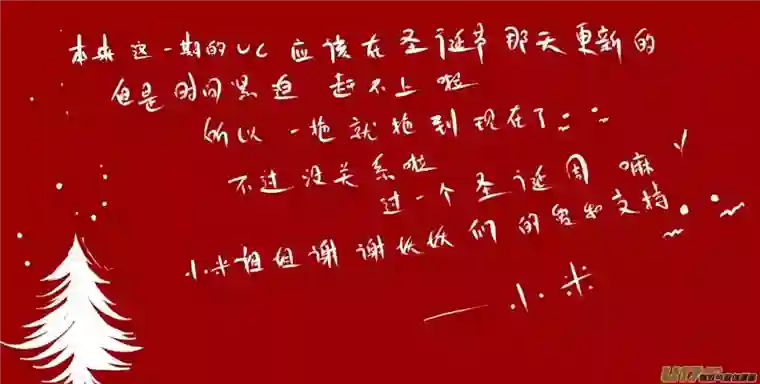 本来这一期的UC应该在圣诞节那天更新的
但是时间紧迫 赶不上啦
所以一拖就拖到现在了
不过没关系啦
过一个圣诞周嘛
小米姐姐谢谢妖妖们的 支持
——小米
U17